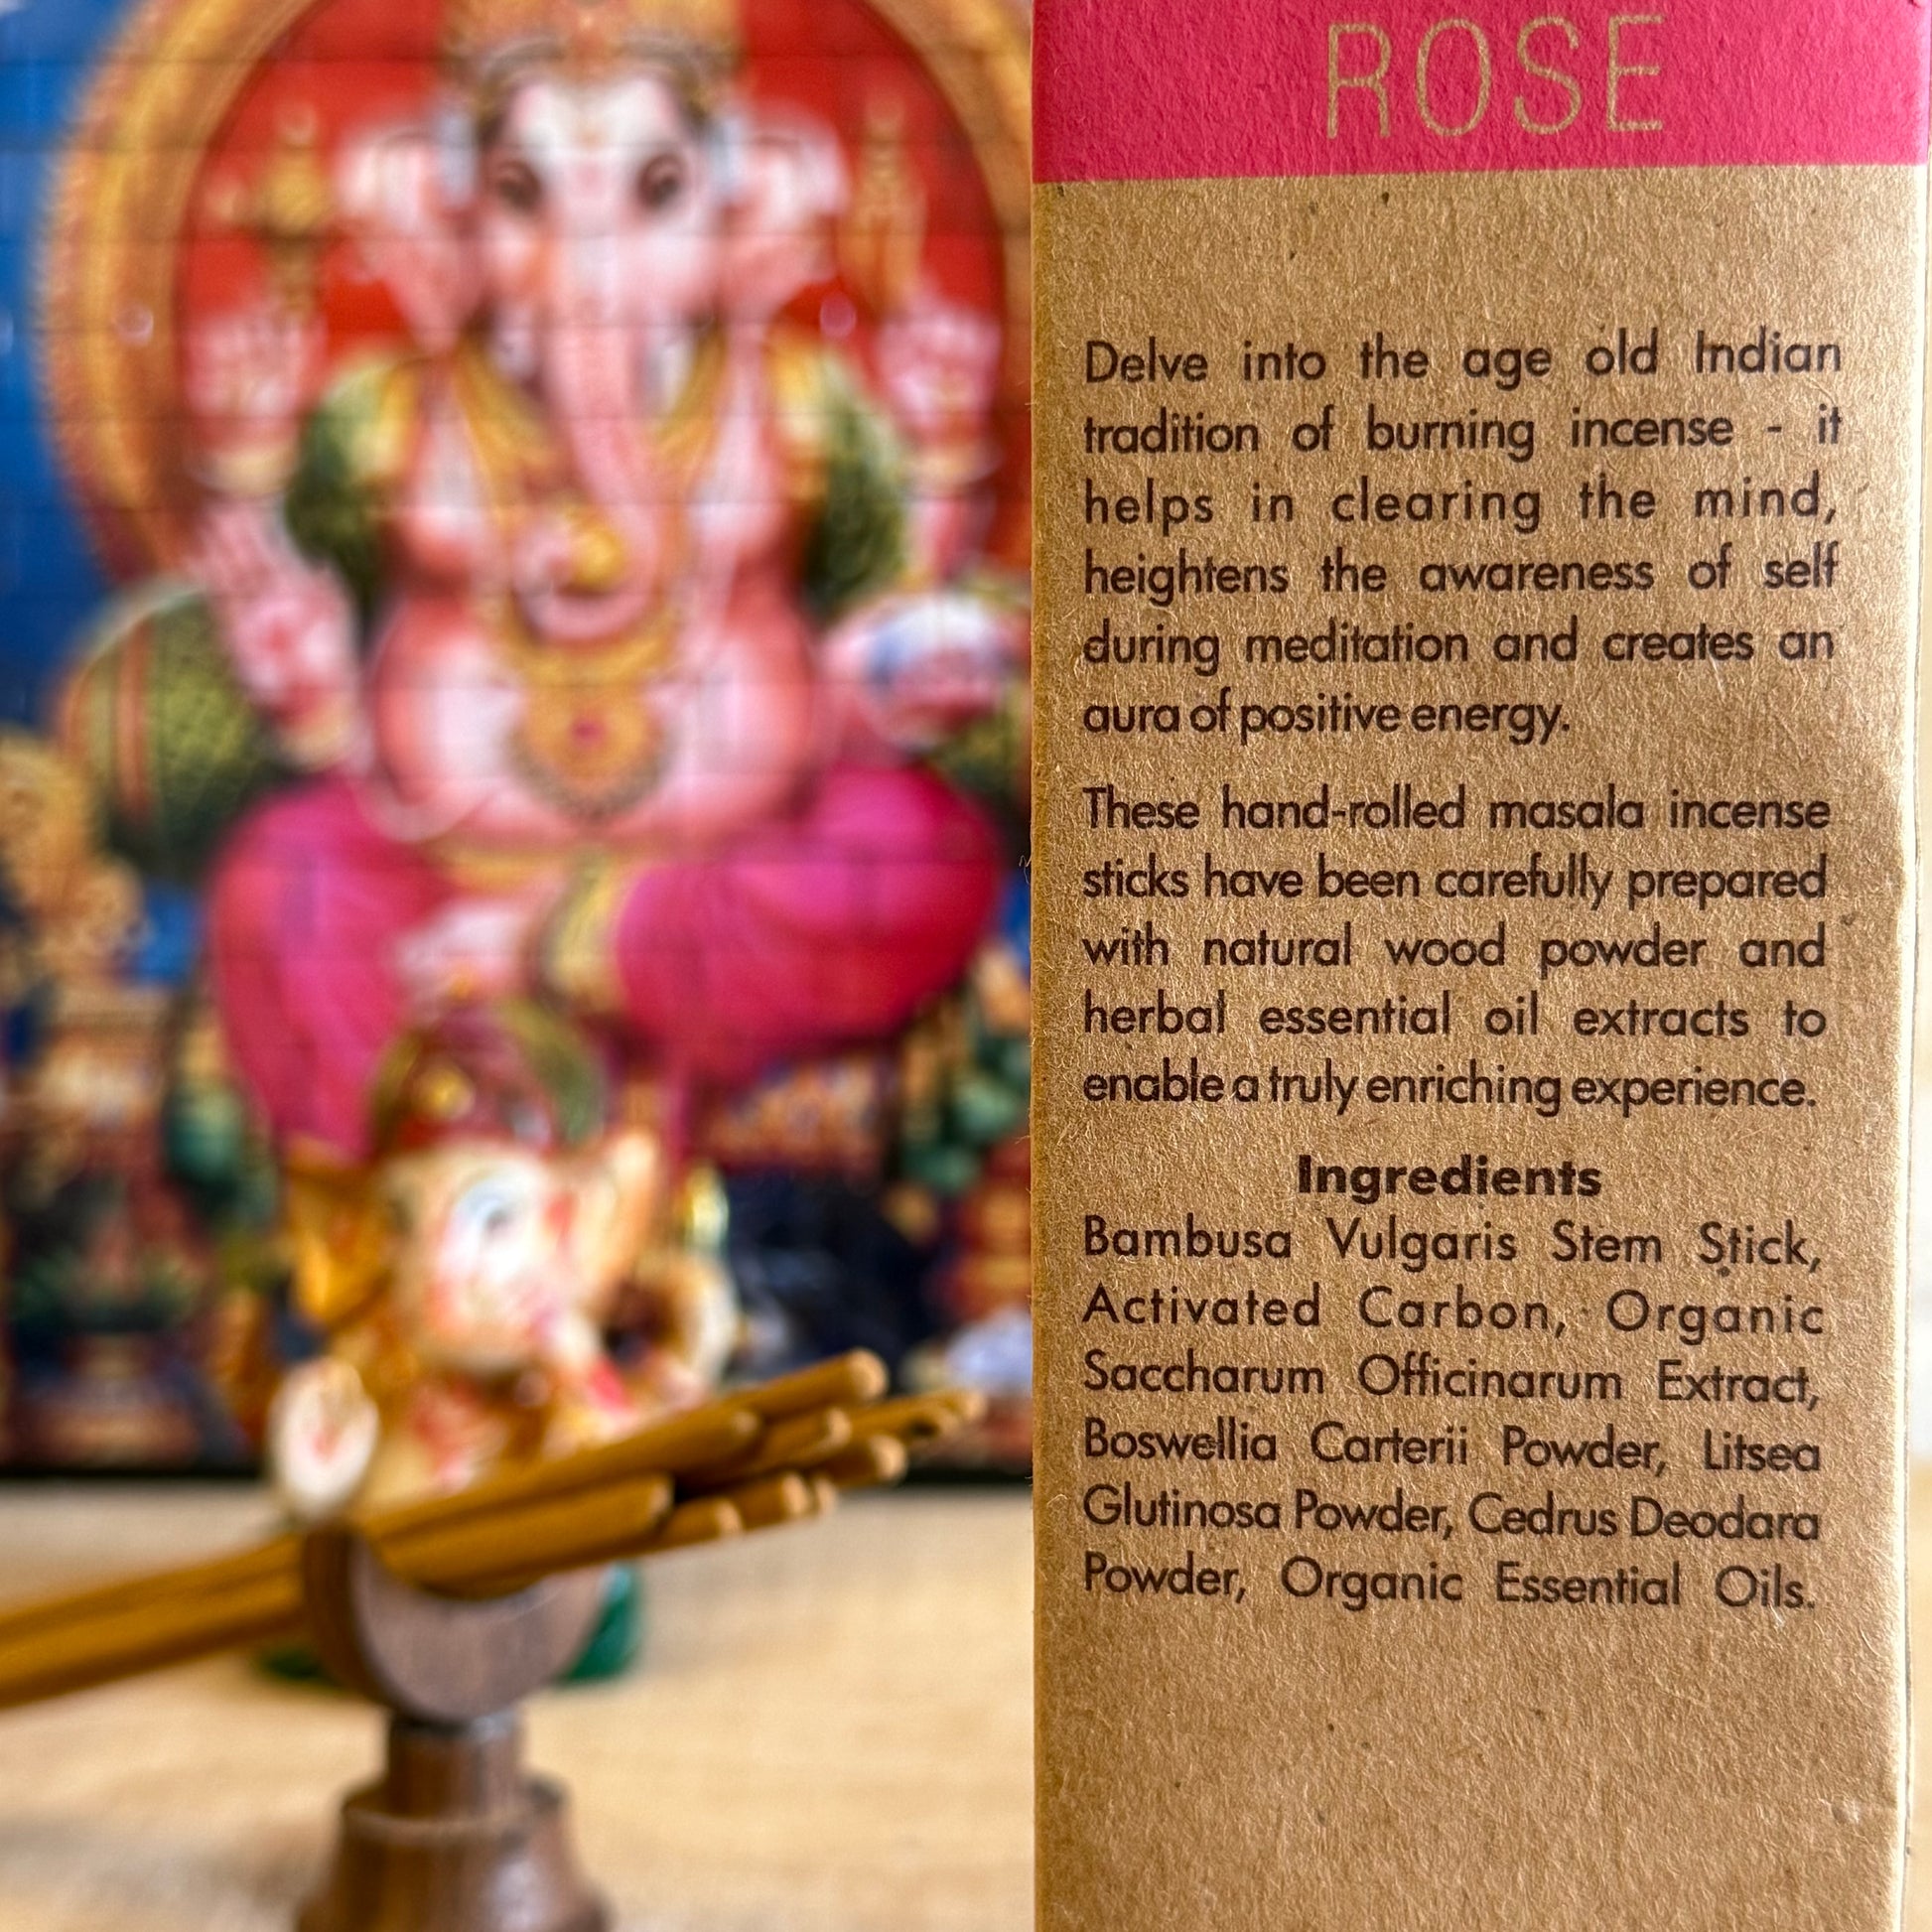 ROSE
Delve into the age old Indian
tradition of burning incense - it
helps in clearing the mind,
heightens the awareness of self
during meditation and creates an
aura of positive energy.
These hand-rolled masala incense
sticks have been carefully prepared
with natural wood powder and
herbal essential oil extracts to
enable a truly enriching experience.
Ingredients
Bambusa Vulgaris Stem Stick,
Activated Carbon, Organic
Saccharum Officinarum Extract,
Boswellia Carterii Powder, Litsea
Glutinosa Powder, Cedrus Deodara
Powder, Organic Essential Oils.